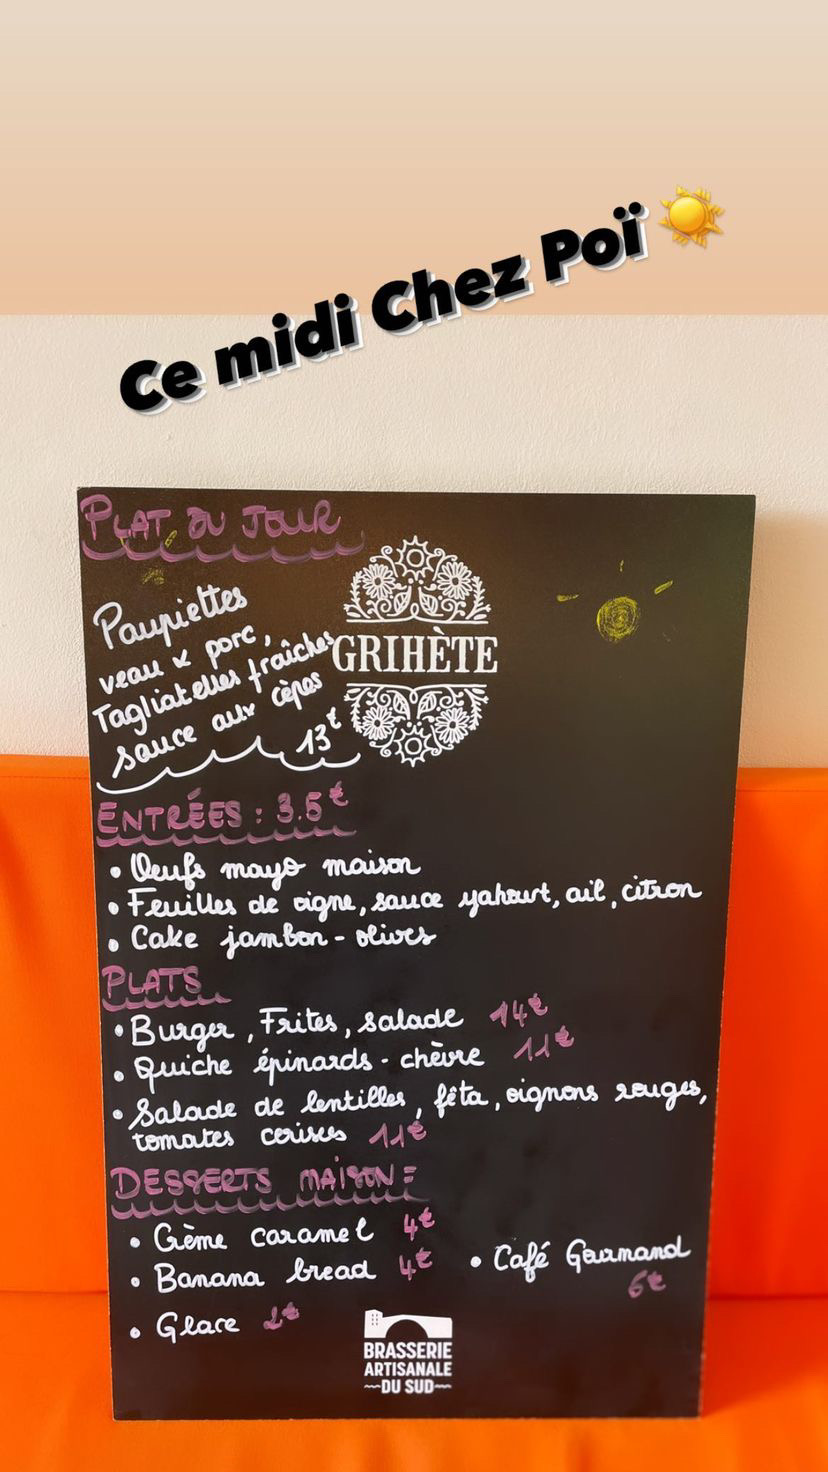 Ce midi Chez Poï
PLAT DU JOUR
Paupiettes
veau & porc,
Tagliatelles fraîches
sauce aux cèpes
13€
GRIHÈTE
ENTRÉES : 3.5€
• Oeufs mayo maison
• Feuilles de vigne, sauce yahourt, ail, citron
• Cake jambon - olives
PLATS
• Burger, Frites, salade 14€
• Quiche épinards - chèvre 11€
• Salade de lentilles, fêta, oignons rouges,
tomates cerises 11€
DESSERTS MAISON :
• Crème caramel 4€
• Banana bread 4€
• Café Gourmand
6€
• Glace 2€
BRASSERIE
ARTISANALE
DU SUD